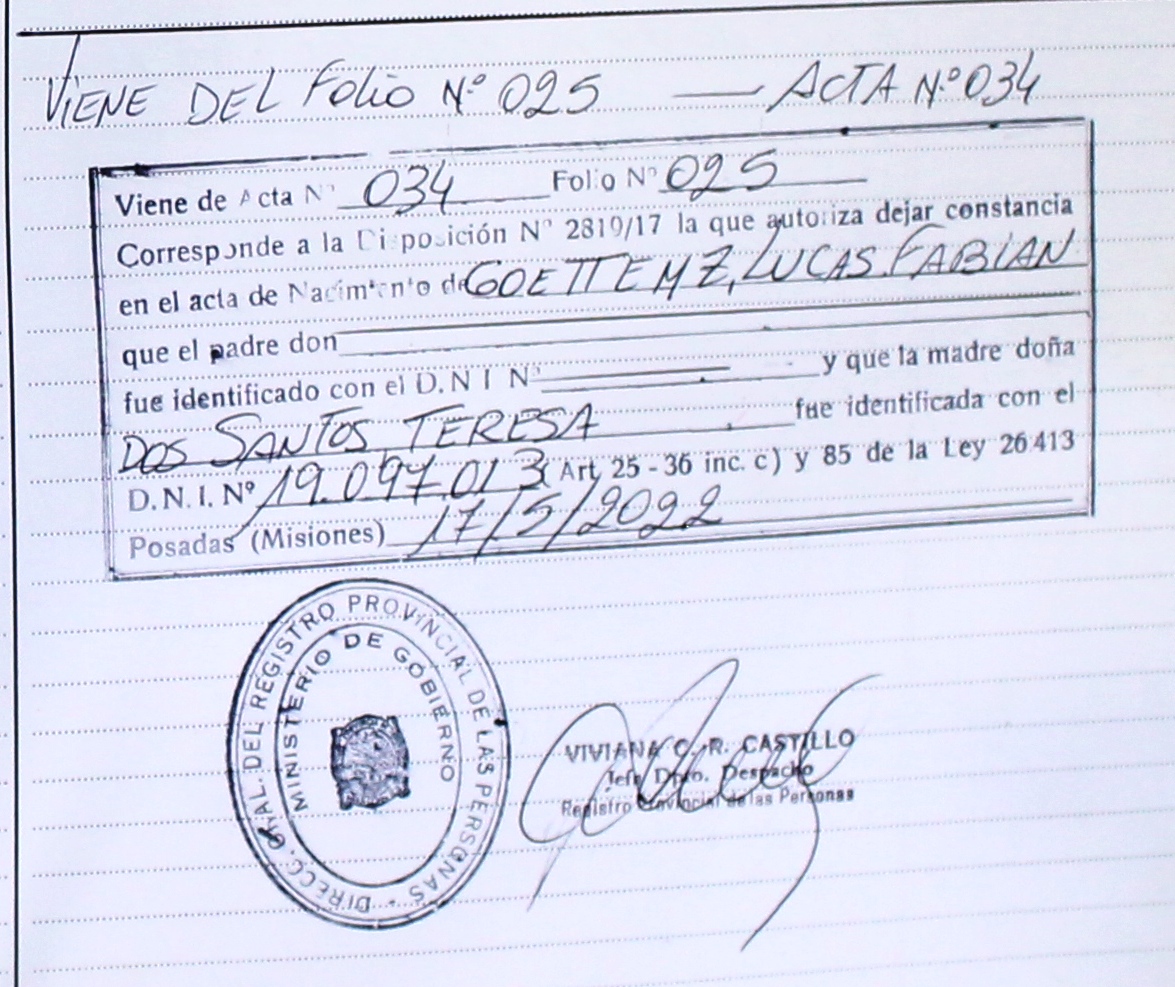 VIENE DEL FOLIO Nº 025 — ACTA Nº 034
Viene de Acta Nº 034 Folio Nº 025
Corresponde a la Disposición Nº 2819/17 la que autoriza dejar constancia
en el acta de Nacimiento de GOETTEMZ, LUCAS FABIAN
que el padre don
fue identificado con el D.N I Nº y que la madre doña
DOS SANTOS TERESA fue identificada con el
D.N.I. Nº 19.097.013 (Art, 25 - 36 inc. c) y 85 de la Ley 26 413
Posadas (Misiones) 17/5/2022
DIRECC. GRAL. DEL REGISTRO PROVINCIAL DE LAS PERSONAS
MINISTERIO DE GOBIERNO
VIVIANA C. R. CASTILLO
Jefe Dpto. Despacho
Registro Provincial de las Personas